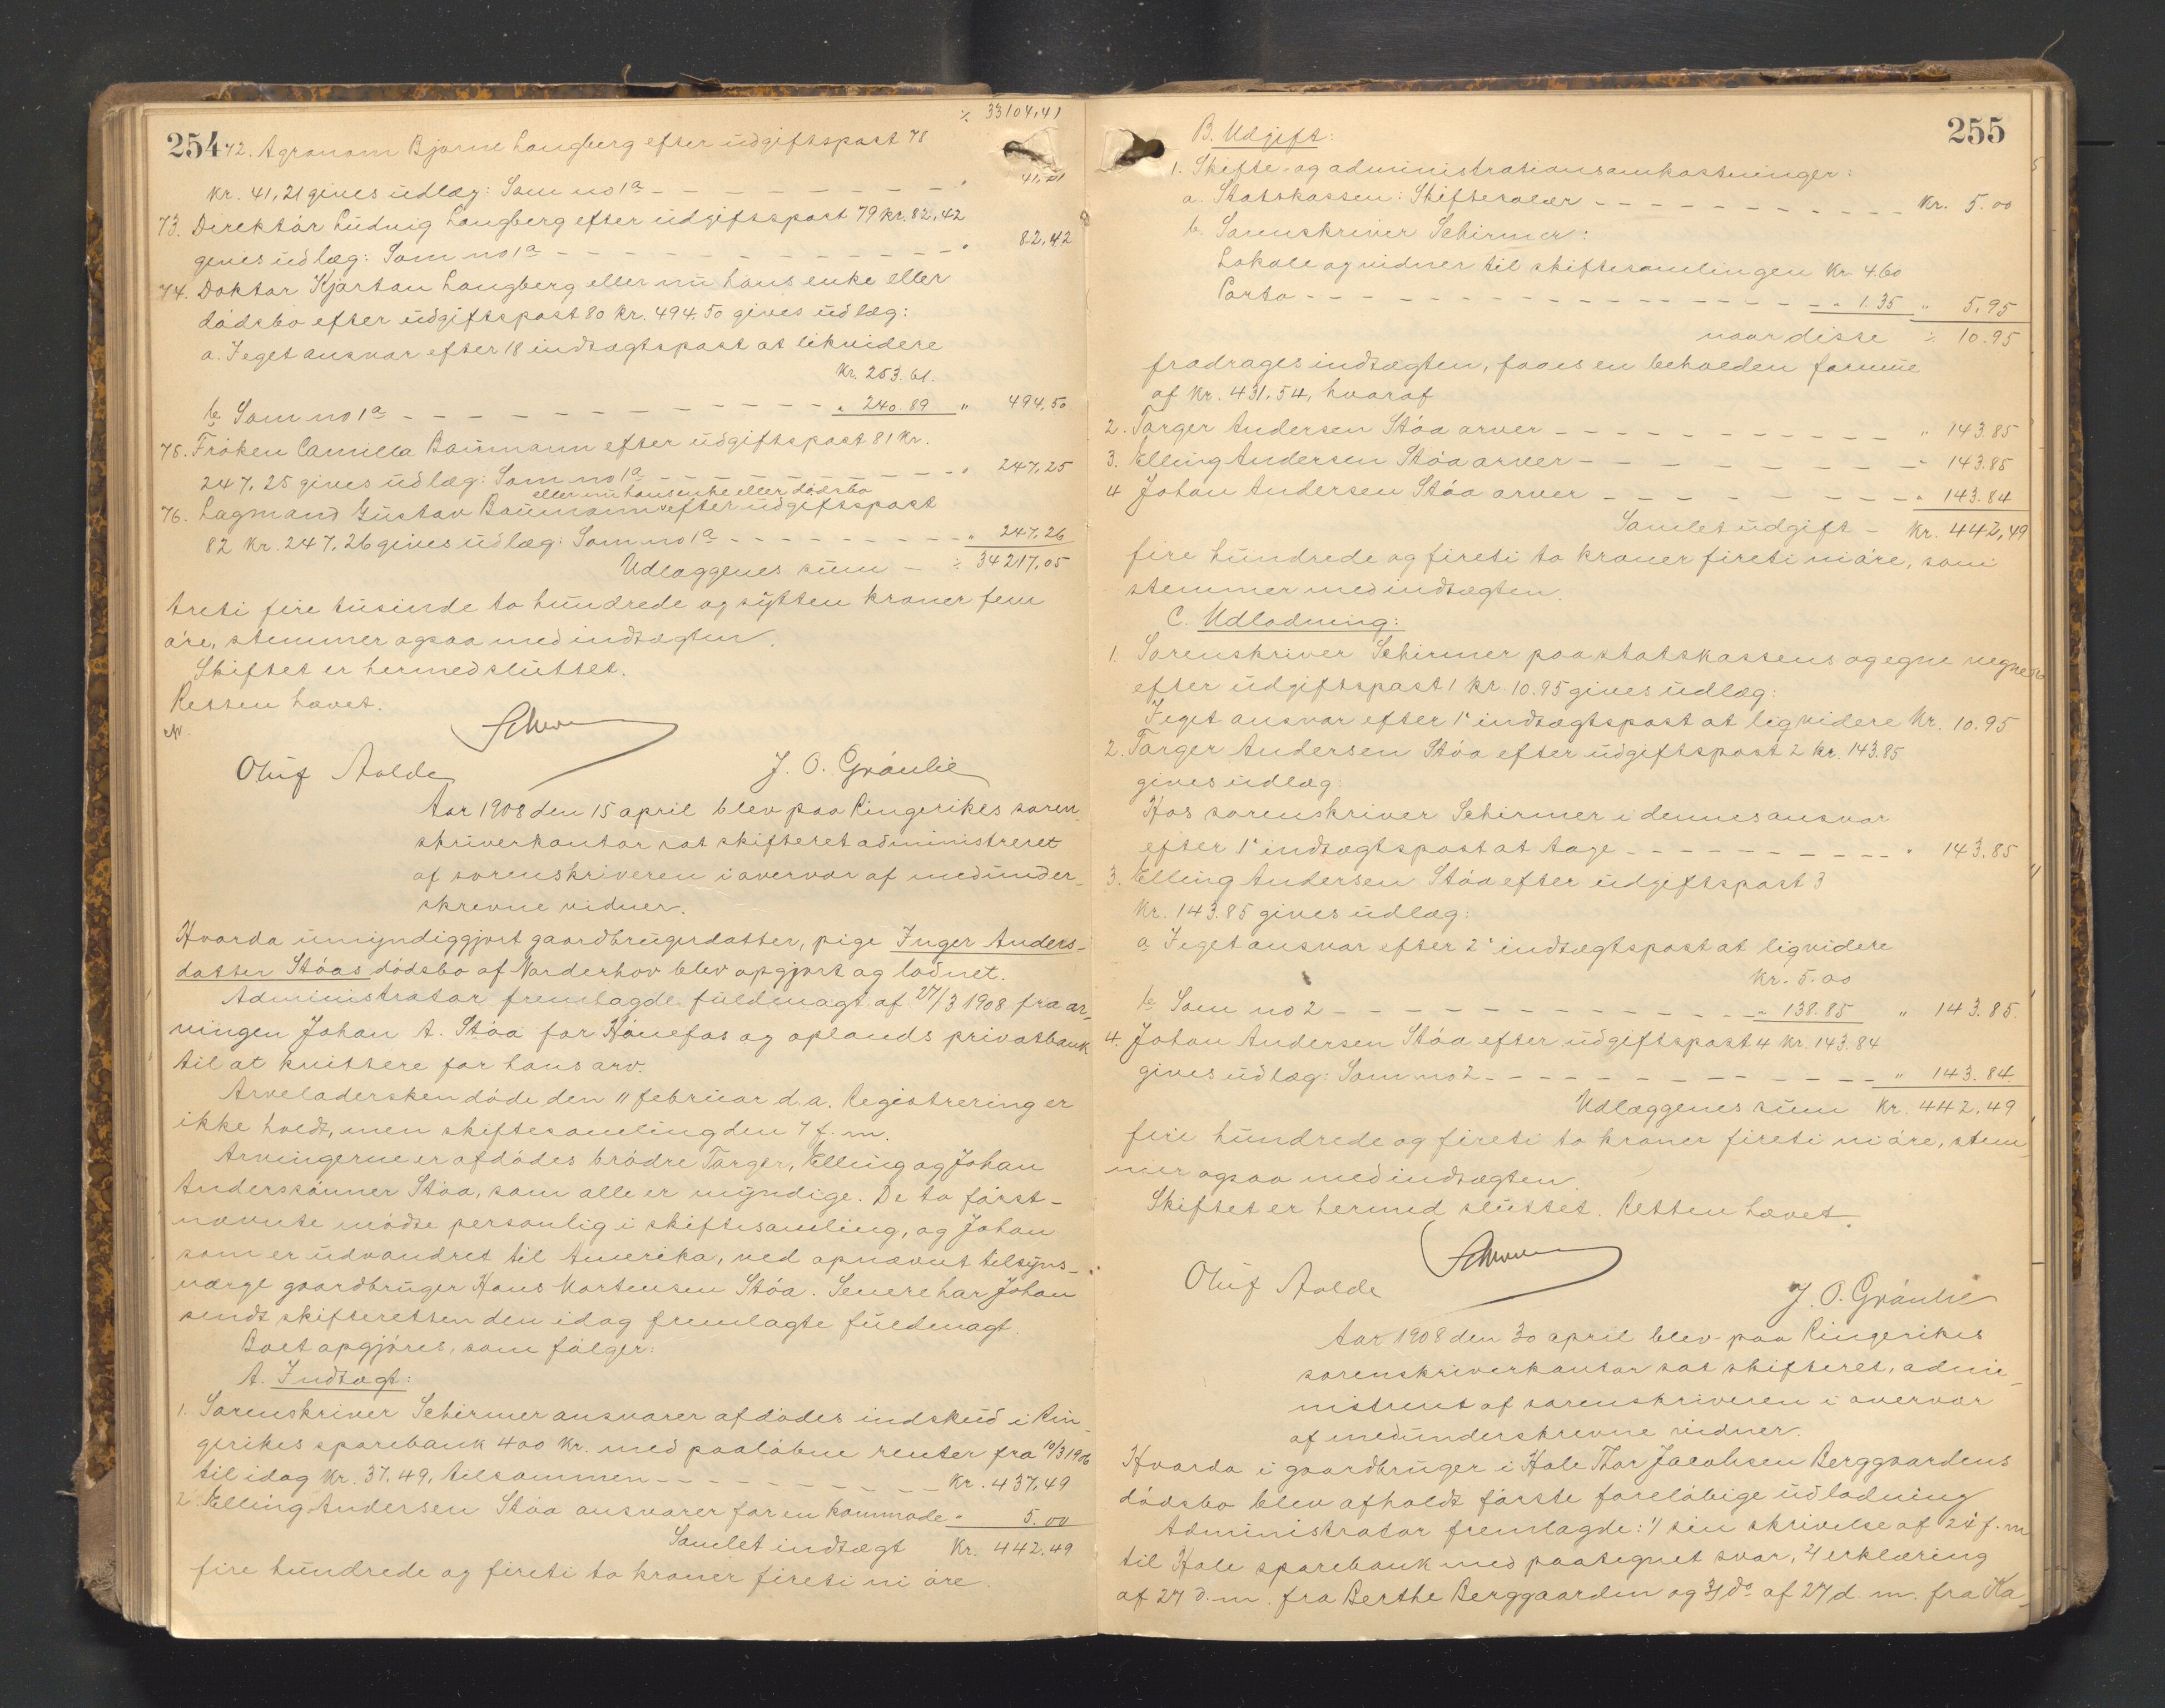 254
⁒ 33104,41
72. Agronom Bjarne Langberg efter udgiftspost 78
kr. 41,21 gives udlæg: Som no 1a - - - - " 41,21
73. Direktör Ludvig Langberg efter udgiftspost 79 kr. 82,42
gives udlæg: Som no 1a - - - - " 82,42
74. Doktor Kjartan Langberg eller nu hans enke eller
dödsbo efter udgiftspost 80 kr. 494.50 gives udlæg:
a. I eget ansvar efter 18 indtægtspost at likvidere
Kr. 253.61.
b. Som no 1a - - - - " 240.89 " 494,50
75. Fröken Camilla Baumann efter udgiftspost 81 kr.
247,25 gives udlæg: Som no 1a - - - - " 247,25
eller nu hans enke eller dödsbo
76. Lagmand Gustav Baumann efter udgiftspost
82 kr. 247,26 gives udlæg: Som no 1a - - - - " 247,26
Udlæggenes sum - ⁒ 34217,05
treti fire tusinde to hundrede og sytten kroner fem
öre, stemmer ogsaa med indtægten.
Skiftet er hermed sluttet.
Retten hævet.
Schirmer
Oluf Aalde J. O. Gråulie
Aar 1908 den 15 april blev paa Ringerikes soren-
skriverkontor sat skifteret administreret
af sorenskriveren i overvær af medunder-
skrevne vidner.
Hvorda umyndiggjort gaardbrugerdatter, pige Inger Anders-
datter Stöas dödsbo af Norderhov blev opgjort og lodnet.
Administrator fremlagde fuldmagt af 27/3 1908 fra ar-
vingen Johan A. Stöa for Hönefos og oplands privatbank
til at kvittere for hans arv.
Arveladersken döde den 11 februar d.a. Registrering er
ikke holdt, men skiftesamling den 7 f.m.
Arvingerne er afdödes brödre Torger, Elling og Johan
Anderssönner Stöa, som alle er myndige. De to först-
nævnte mödte personlig i skiftesamling, og Johan
som er udvandret til Amerika, ved opnævnt tilsyns-
værge gaardbruger Hans Mortensen Stöa. Senere har Johan
sendt skifteretten den idag fremlagte fuldmagt.
Boet opgjöres, som fölger:
A. Indtægt:
1. Sorenskriver Schirmer ansvarer afdödes indskud i Rin-
gerikes sparebank 400 kr. med paalöbne renter fra 10/3 1906
til idag kr. 37.49, tilsammen - - - - Kr. 437,49
2. Elling Andersen Stöa ansvarer for en kommode " 5.00
Samlet indtægt Kr. 442.49
fire hundrede og fireti to kroner fireti ni öre.
255
B. Udgift:
1. Skifte- og administrationsomkostninger:
a. Statskassen: Skiftesalær - - - - Kr. 5.00
b. Sorenskriver Schirmer:
Lokale og vidner til skiftesamlingen Kr. 4.60
Porto - - - - " 1.35 " 5,95
naar disse ⁒ 10.95
fradrages indtægten, faaes en beholden formue
af kr. 431,54, hvoraf
2. Torger Andersen Stöa arver - - - - " 143.85
3. Elling Andersen Stöa arver - - - - " 143.85
4 Johan Andersen Stöa arver - - - - " 143.84
Samlet udgift - Kr. 442,49
fire hundrede og fireti to kroner fireti ni öre, som
stemmer med indtægten.
C. Udlodning:
1. Sorenskriver Schirmer paa statskassens og egne vegne
efter udgiftspost 1 kr. 10.95 gives udlæg:
I eget ansvar efter 1' indtægtspost at ligvidere Kr. 10.95
2. Torger Andersen Stöa efter udgiftspost 2 kr. 143.85
gives udlæg:
Hos sorenskriver Schirmer i dennes ansvar
efter 1' indtægtspost at tage - - - - " 143.85
3. Elling Andersen Stöa efter udgiftspost 3
Kr. 143.85 gives udlæg:
a. I eget ansvar efter 2' indtægtspost at ligvidere
Kr. 5.00
b. Som no 2 - - - - " 138.85 " 143.85.
4. Johan Andersen Stöa efter udgiftspost 4 kr. 143.84
gives udlæg: Som no 2 - - - - " 143.84.
Udlæggenes sum Kr. 442,49
fire hundrede og fireti to kroner fireti ni öre, stem-
mer ogsaa med indtægten.
Skiftet er hermed sluttet. Retten hævet.
Schirmer
Oluf Aalde J. O. Gråulie
Aar 1908 den 30 april blev paa Ringerikes
sorenskriverkontor sat skifteret, admi-
nistreret af sorenskriveren i overvær
af medunderskrevne vidner.
Hvorda i gaardbruger i Hole Thor Jacobsen Berggaardens
dödsbo blev afholdt förste forelöbige udlodning
Administrator fremlagde: 1/ sin skrivelse af 24 f.m
til Hole sparebank med paategnet svar, 2/ erklæring
af 27 d.m. fra Berthe Berggaarden og 3/ do af 27 d.m. fra Ka-